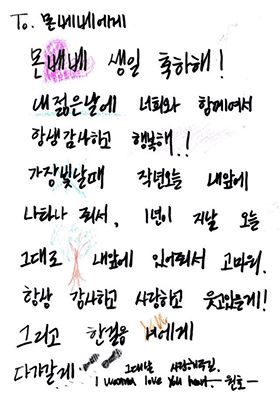 To. 몬베베에게
몬베베 생일 축하해!
내 젊은날에 너희와 함께여서
항상감사하고 행복해!
가장빛날때 작년오늘 내앞에
나타나 줘서, 1년이 지날 오늘
그대로 내앞에 있어줘서 고마워.
항상 감사하고 사랑하고 웃고있을게!
그리고 한걸음 너에게
다가갈게
그대날 사랑해주길.
I wanna love you heart. -원호-